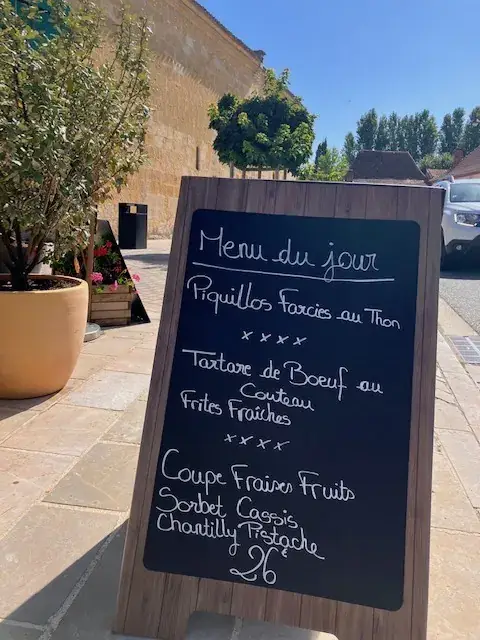 Menu du jour
Piquillos Farcies au Thon
x x x x
Tartare de Boeuf au
Couteau
Frites Fraîches
x x x x
Coupe Fraises Fruits
Sorbet Cassis
Chantilly Pistache
26€